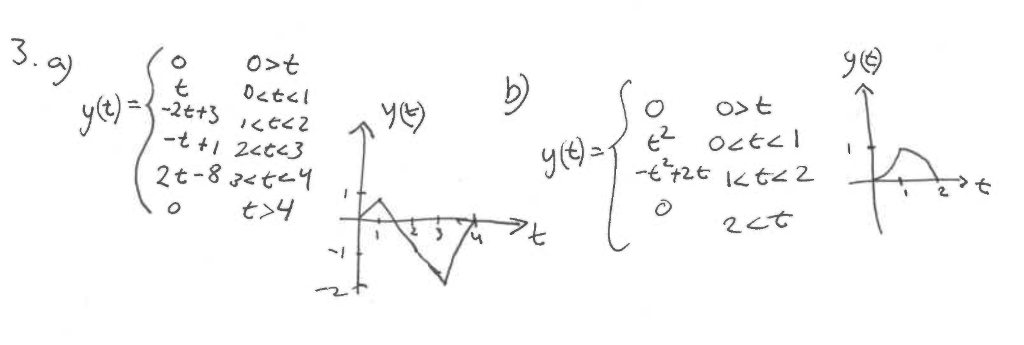 3. a)
y(t) = { 0 0>t
t 0<t<1
-2t+3 1<t<2
-t+1 2<t<3
2t-8 3<t<4
0 t>4
y(t)
1
1 2 3 4 t
-1
-2
b)
y(t) = { 0 0>t
t² 0<t<1
-t²+2t 1<t<2
0 2<t
y(t)
1
1 2 t